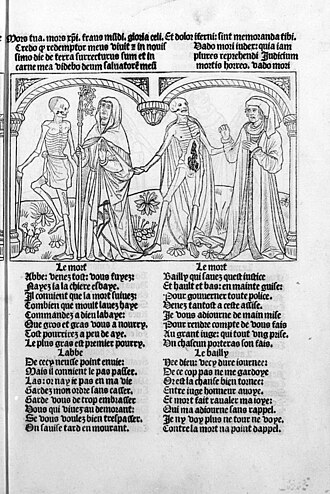 Mors tua. mors xpi. fraus mūdi. gloria celi. Et dolor iferni: sint memoranda tibi.
Credo q̄ redemptor meus viuit z in nouis
simo die de terra surrecturus sum et in
carne mea videbo deum saluatorē meū
Vado mori iudex: quia iam
plures reprehendi Judicium
mortis horreo. vado mori
Le mort
Abbe: venez tost: vous fuyez:
Nayez ia la chiere esbaye.
Il conuient que la mort suiuez:
Combien que moult lauez haye
Commandez a dieu labaye:
Que gros et gras vous a nourry.
Tost pourrirez a peu de aye.
Le plus gras est premier pourry.
Labbe
De cecy neusse point enuie:
Mais il conuient le pas passer.
Las: or nay ie pas en ma vie
Garde mon ordre sans casser.
Garde vous de trop embrasser
Vous qui viuez au demorant:
Se vous voulez bien trespasser.
On sauise tard en mourant.
Le mort
Bailly qui sauez quest iustice
Et hault et bas: en mainte guise:
Pour gouuerner toute police.
Venez tantost a ceste assise.
Je vous adiourne de main mise
Pour rendre compte de vous fais
Au grant iuge: qui tout vng prise.
Un chascun porteras son fais.
Le bailly
Hee dieu: vecy dure iournee:
De ce cop pas ne me gardoye
Or est la chanse bien tornee:
Entre iuge honneur auoye.
Et mort fait raualer ma ioye:
Qui ma adiourne sans rappel.
Je ny voy plus ne tour ne voye.
Contre la mort na point dappel.